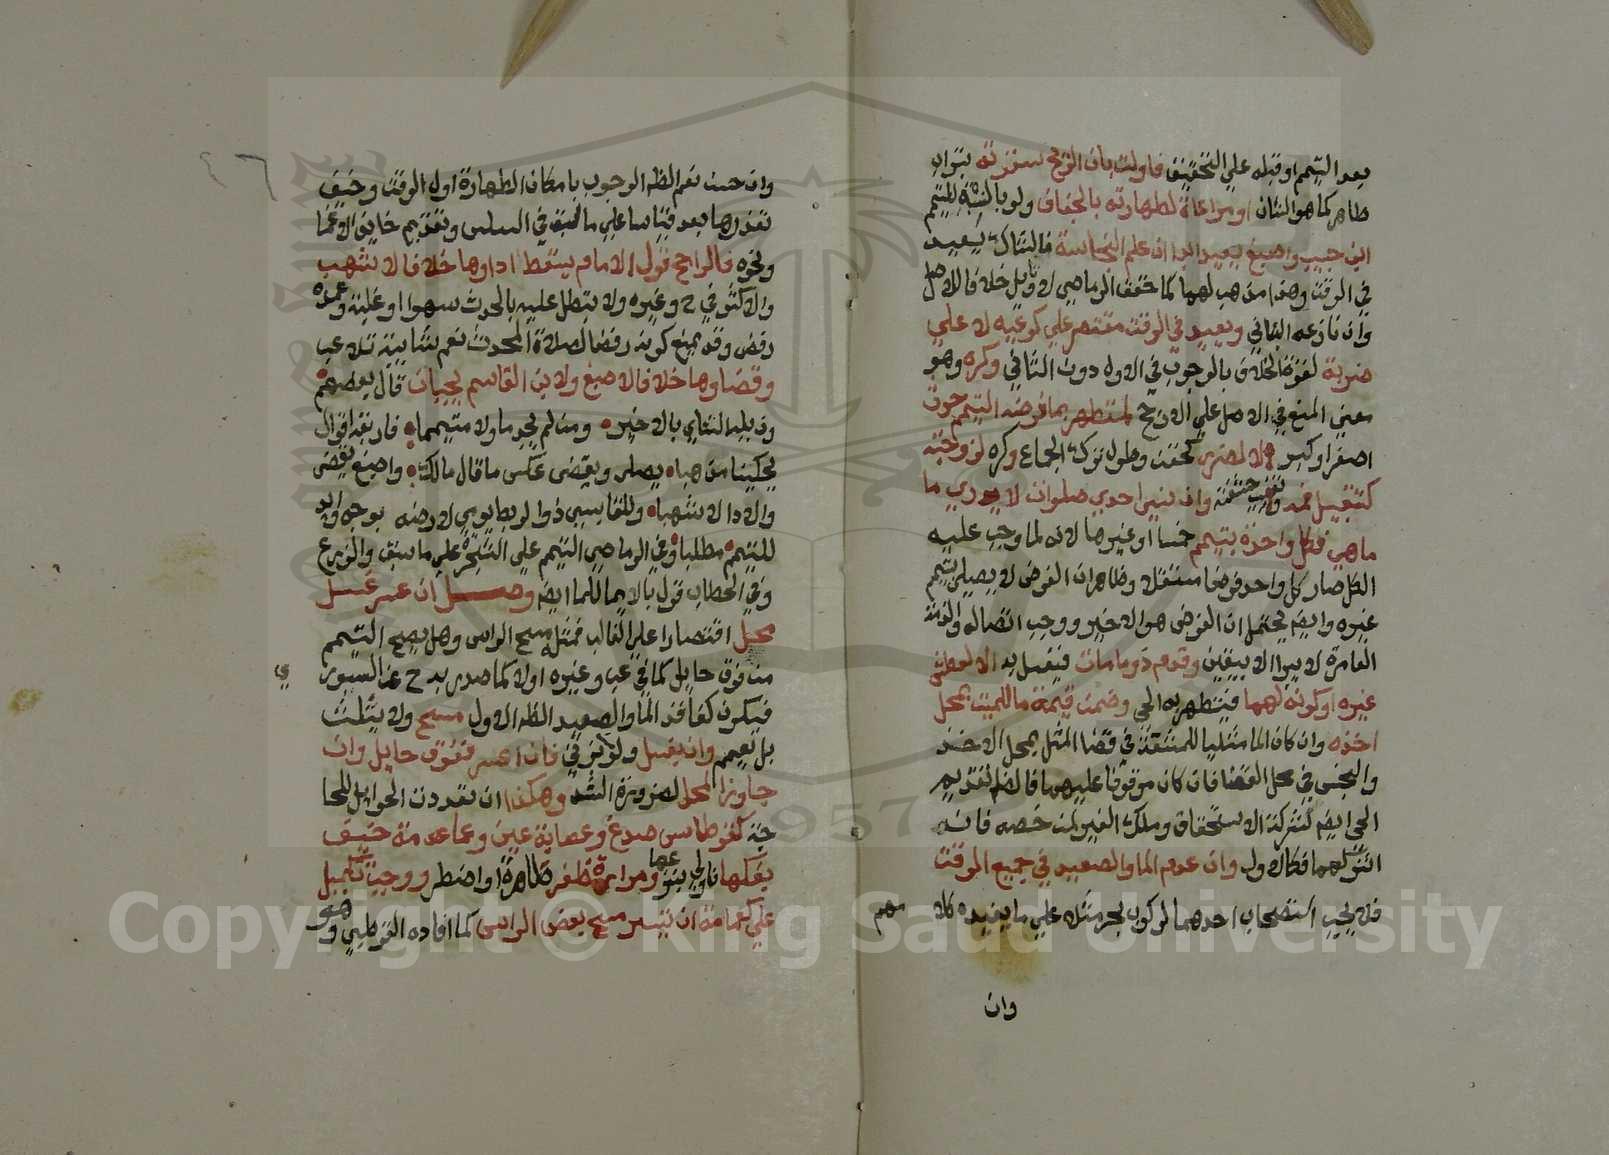 بعد التيمم او قبله علي التحقيق فاولت بان الريح سترته بتراب
طاهر كما هو الشان او مراعاة لطهارته بالجفاف ولو بالنسبة للتيمم
ابن حبيب واصبغ يعيد ابدا ان علم النجاسة فالشاك يعيد
في الوقت وهذا مذهب لهما كما حققه الرماصي لا تاويل خلافا للاصل
وان نازعه البناني ويعيد في الوقت مقتصر علي كوعيه لا علي
ضربة لقوة الخلاف بالوجوب في الاول دون الثاني وكره وهو
معني المنع في الاصل علي الارجح لمتطهر بما فرضه التيمم حدث
اصغر او كبير لا لضرر كحقن وطول ترك الجماع وكره لزوجته
كتقبيل وان نسي احدي صلوات لا يدري ما
ما هي فكل واحدة بتيمم خمسا او غيرها لانه لما وجب عليه
الكل صار كل واحد فرضا مستقلا وظاهر ان الفرض لا يصلي بتيمم
غيره وايضا يحتمل ان الفرض هو الاخير ووجب اتصاله والذمة
العامرة لا تبرا الا بيقين وقدم ذو ما مات فيغسل به الا لعطش
غيره او كونه لهما فيتطهر به الحي وضمن قيمة ما للميت بمحل
اخذه وان كان الما مثليا للمشقة في قضا المثل بمحل الاخذ
والبخس في محل القضا فان كان موقوفا عليهما فالظاهر تقديم
الحي ايضا كشركة الاستحقاق وملك الغير لمن خصه فان
لهما فكالاول وان عدم الما والصعيد في جميع الوقت
فلا يجب استصحاب احدهما لركوب بحر مثلا علي ما يفيده كلامهم
وان
٤٦
وان حيث نعم الظاهر الوجوب بامكان الطهارة اول الوقت وخيف
تعذرها بعد قياسا علي ما في السلس وتقديم خايف الاغما
ونحوه فالراجح قول الامام يسقط اداوها خلافا لاشهب
والاكثر في ح وغيره ولا يبطل عليه بالحدث سهوا او غلبة وعمده
رفض وقد يمنع كونه رفضا لصلاة المحدث نعم بشايبة تلاعب
وقضاوها خلافا لاصبغ ولابن القاسم يجبان قال بعضهم
وذيله التتاي بالاخير ومن لم يجد ما ولا متيمما فاربعة اقوال
يحكين مذهبا يصلي ويقضي عكس ما قال مالك واصبغ يقضي
والادا لاشهبا وللقابسي ذو الربط يومي لارضه بوجه وايد
للتيمم مطلبا وفي الرماصي التيمم علي الشجرة علي ما سبق والفرع
وفي الحطاب قول بالايما للما ايضا وصل ان عسر غسل
محل اقتصارا علي الغالب فمثله مسح الراس وهل يصح التيمم
من فوق حايل كما في عب وغيره اولا كما صدر به ح عن السيوري
فيكون كفاقد الما والصعيد الظاهر الاول مسح ولا يثلث
بل يعمم وان بغسل ولا يوفي فان اعسر ففوق حايل وان
جاوز المحل لضرورة الشد وهكذا ان تعددت الحوايل للحا
جة كقرطاس صدغ وعصابة عين وعمامة خيف
بفكها ومرارة ظفر ظاهرة او اضطر ووجب
علي كعمامة ان تيسر مسح بعض الراس كما افاده القرطبي وهو
Copyright © King Saud University
1957